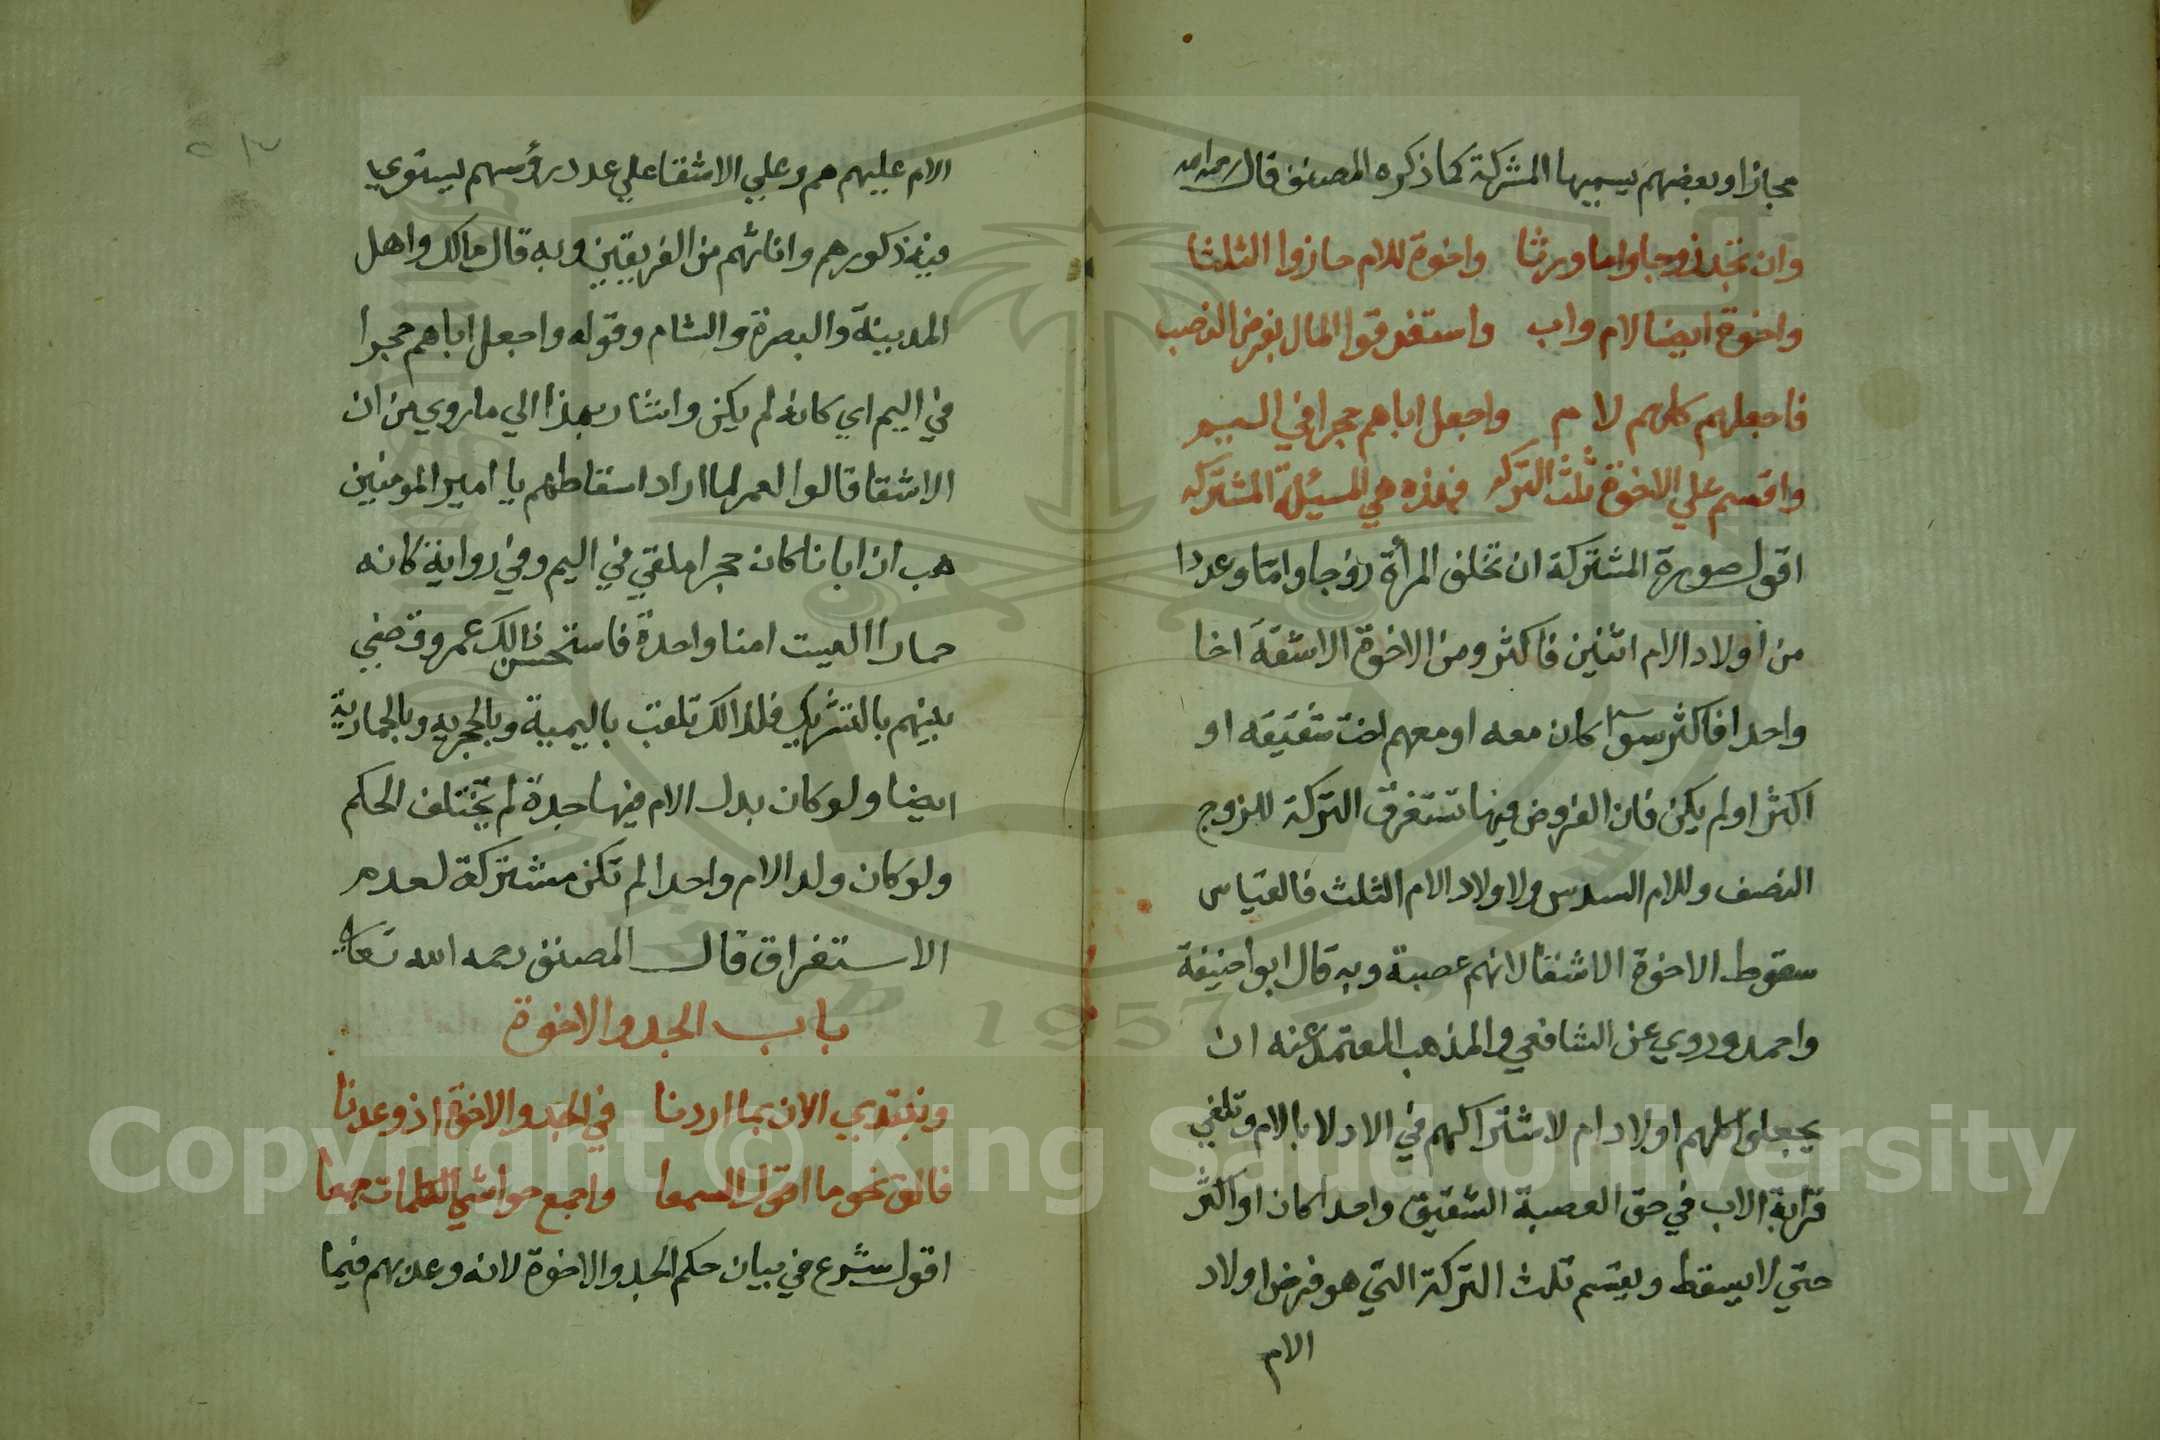 مجازا وبعضهم يسميها المشركة كما ذكره المصنف قال رحمه الله
وان تجد زوجا واما ورثا واخوة للام حازوا الثلثا
واخوة ايضا لام واب واستغرقوا المال بفرض النصب
فاجعلهم كلهم لام واجعل اباهم حجرا في اليم
واقسم علي الاخوة ثلث التركه فهذه هي المسئلة المشتركه
اقول صورة المشتركة ان تخلف المرأة زوجا واما وعددا
من اولاد الام اثنين فاكثر ومن الاخوة الاشقة اخا
واحدا فاكثر سوا كان معه او معهم اخت شقيقه او
اكثر اولم يكن فان الفروض فيها تستغرق التركة للزوج
النصف وللام السدس ولاولاد الام الثلث فالقياس
سقوط الاخوة الاشقا لانهم عصبة وبه قال ابوا حنيفة
واحمد وروي عن الشافعي والمذهب المعتمد عنه ان
يجعلوا كلهم اولاد ام لاشتراكهم في الادلا بالام وتلغي
قرابة الاب في حق العصبة الشقيق واحدا كان او اكثر
حتي لا يسقط ويقسم ثلث التركة التي هو فرض اولاد
الام
الام عليهم هم وعلي الاشقا علي عدد رؤسهم يستوي
فيه ذكورهم واناثهم من الفريقين وبه قال مالك واهل
المدينة والبصرة والشام وقوله واجعل اباهم حجرا
في اليم اي كانه لم يكن واشار بهذا الي ما روي من ان
الاشقا قالوا لعمر لما اراد اسقاطهم يا امير المومنين
هب ان ابانا كان حجرا ملقي في اليم وفي رواية كانه
حمارا اليست امنا واحدة فاستحسن ذالك عمر وقضي
بينهم بالتشريك فلذالك تلقب باليمية وبالحجريه وبالحمارية
ايضا ولو كان بدل الام فيها جدة لم يختلف الحكم
ولو كان ولد الام واحدا لم تكن مشتركة لعدم
الاستغراق قال المصنف رحمه الله تعالي
باب الجد والاخوة
ونبتدي الان بما اردنا في الجد والاخوة اذ وعدنا
فالق نحو ما اقول السمعا واجمع حواشي الكلمات جمعا
اقول شرع في بيان حكم الجد والاخوة لانه وعد بهم فيما
Copyright © King Saud University
1957